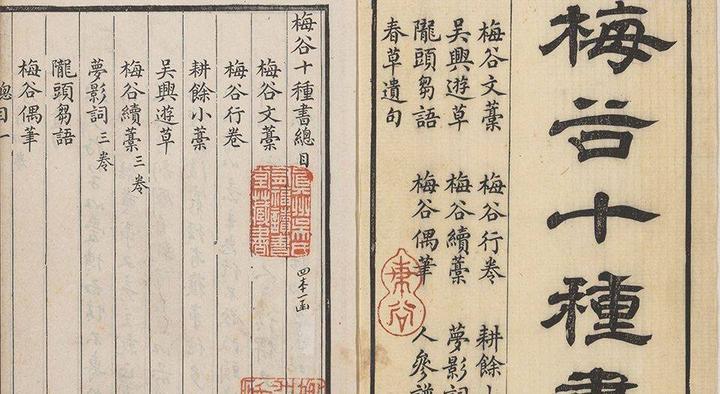 梅谷十種書
梅谷文藁 梅谷行卷 耕餘小
吳興遊草 梅谷續藁 夢影詞
隴頭芻語 梅谷偶筆 人參譜
春草遺句
梅谷十種書總目
四本一函
真州吳氏有福讀書堂藏書
梅谷文藁
梅谷行卷
耕餘小藁
吳興遊草
梅谷續藁三卷
夢影詞三卷
隴頭芻語
梅谷偶筆
總目一